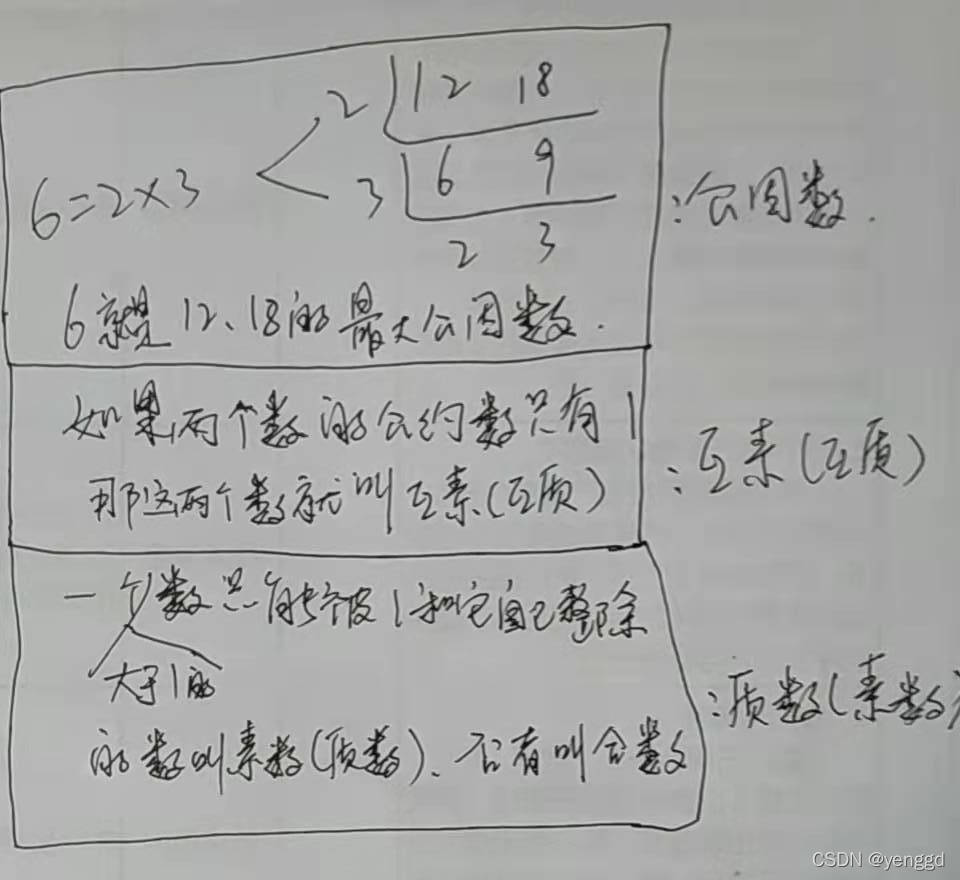 2 12 18
6=2×3
3 6 9
:公因数.
2 3
6就是12、18的最大公因数.
如果两个数的公约数只有1
那这两个数就叫互素(互质)
:互素(互质)
一个数只能够被1和它自己整除
大于1的
的数叫素数(质数)、否有叫合数
:质数(素数)
CSDN @yenggd